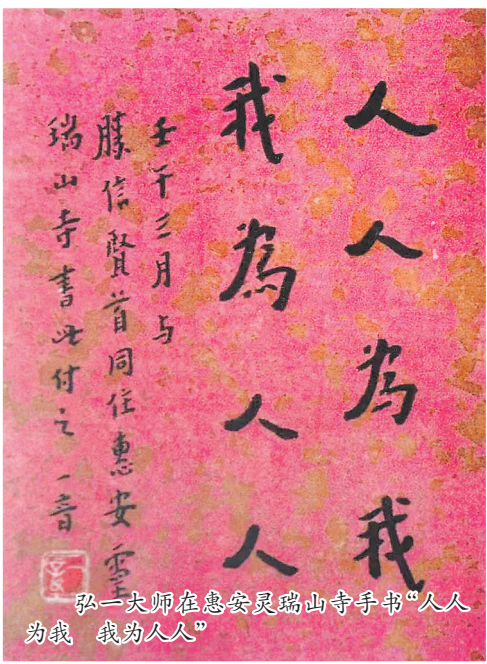 人人為我
我為人人
壬午三月与
勝信賢首同住惠安靈
瑞山寺書此付之 一音
弘一大师在惠安灵瑞山寺手书“人人
为我 我为人人”